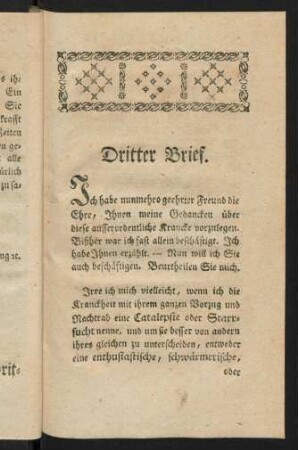 Dritter Brief.
Ich habe nunmehro geehrter Freund die
Ehre, Ihnen meine Gedancken über
diese ausserordentliche Krancke vorzulegen.
Bißher war ich fast allein beschäftigt. Ich
habe Ihnen erzählt. — Nun will ich Sie
auch beschäftigen. Beurtheilen Sie mich.
Irre ich mich vielleicht, wenn ich die
Kranckheit mit ihrem ganzen Vorzug und
Nachtrab eine Catalepsie oder Starr-
sucht nenne, und um sie besser von andern
ihres gleichen zu unterscheiden, entweder
eine enthusiastische, schwärmerische,
oder